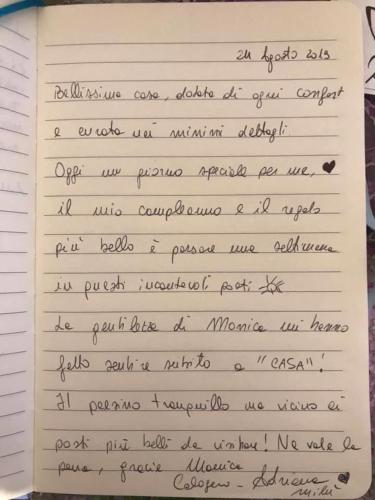 24 Agosto 2019
Bellissima casa, dotata di ogni confort
e curata nei minimi dettagli.
Oggi un giorno speciale per me,
il mio compleanno e il regalo
più bello è passare una settimana
in questi incantevoli posti
La gentilezza di Monica mi hanno
fatto sentire subito a "CASA"!
Il paesino tranquillo ma vicino ai
posti più belli da visitare! Ne vale la
pena, grazie Monica
Calogero - Adriana